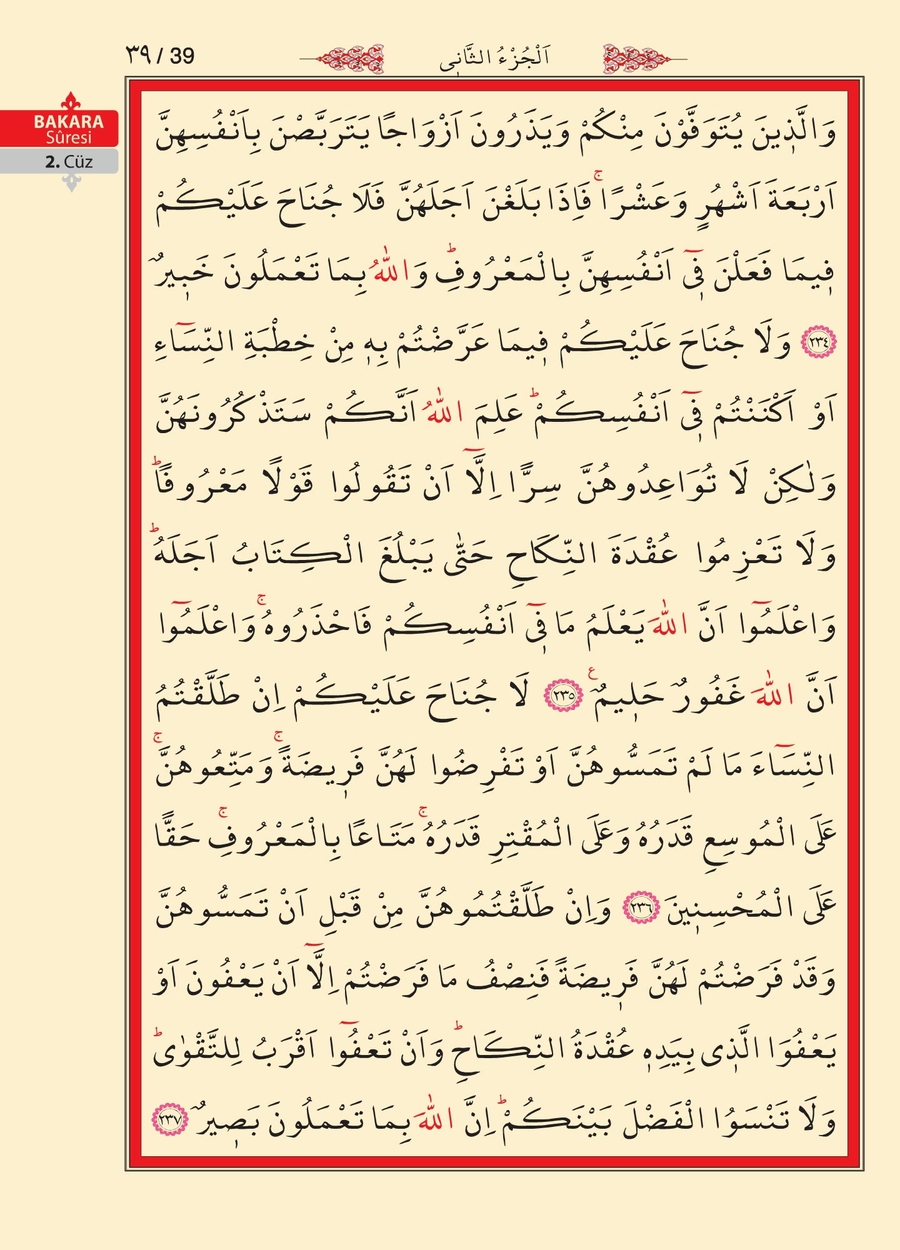 ٣٩ / 39
اَلْجُزْءُ الثَّانٖى
BAKARA
Sûresi
2. Cüz
وَالَّذٖينَ يُتَوَفَّوْنَ مِنْكُمْ وَيَذَرُونَ اَزْوَاجًا يَتَرَبَّصْنَ بِاَنْفُسِهِنَّ
اَرْبَعَةَ اَشْهُرٍ وَعَشْرًاۚ فَاِذَا بَلَغْنَ اَجَلَهُنَّ فَلَا جُنَاحَ عَلَيْكُمْ
فٖيمَا فَعَلْنَ فٖٓى اَنْفُسِهِنَّ بِالْمَعْرُوفِؕ وَاللّٰهُ بِمَا تَعْمَلُونَ خَبٖيرٌ
﴿٢٣٤﴾ وَلَا جُنَاحَ عَلَيْكُمْ فٖيمَا عَرَّضْتُمْ بِهٖ مِنْ خِطْبَةِ النِّسَٓاءِ
اَوْ اَكْنَنْتُمْ فٖٓى اَنْفُسِكُمْؕ عَلِمَ اللّٰهُ اَنَّكُمْ سَتَذْكُرُونَهُنَّ
وَلٰكِنْ لَا تُوَاعِدُوهُنَّ سِرًّا اِلَّٓا اَنْ تَقُولُوا قَوْلًا مَعْرُوفًاؕ
وَلَا تَعْزِمُوا عُقْدَةَ النِّكَاحِ حَتّٰى يَبْلُغَ الْكِتَابُ اَجَلَهُؕ
وَاعْلَمُٓوا اَنَّ اللّٰهَ يَعْلَمُ مَا فٖٓى اَنْفُسِكُمْ فَاحْذَرُوهُۚ وَاعْلَمُٓوا
اَنَّ اللّٰهَ غَفُورٌ حَلٖيمٌࣖ ﴿٢٣٥﴾ لَا جُنَاحَ عَلَيْكُمْ اِنْ طَلَّقْتُمُ
النِّسَٓاءَ مَا لَمْ تَمَسُّوهُنَّ اَوْ تَفْرِضُوا لَهُنَّ فَرٖيضَةًۚ وَمَتِّعُوهُنَّۚ
عَلَى الْمُوسِعِ قَدَرُهُ وَعَلَى الْمُقْتِرِ قَدَرُهُۚ مَتَاعًا بِالْمَعْرُوفِۚ حَقًّا
عَلَى الْمُحْسِنٖينَ ﴿٢٣٦﴾ وَاِنْ طَلَّقْتُمُوهُنَّ مِنْ قَبْلِ اَنْ تَمَسُّوهُنَّ
وَقَدْ فَرَضْتُمْ لَهُنَّ فَرٖيضَةً فَنِصْفُ مَا فَرَضْتُمْ اِلَّٓا اَنْ يَعْفُونَ اَوْ
يَعْفُوَا الَّذٖى بِيَدِهٖ عُقْدَةُ النِّكَاحِؕ وَاَنْ تَعْفُٓوا اَقْرَبُ لِلتَّقْوٰىؕ
وَلَا تَنْسَوُا الْفَضْلَ بَيْنَكُمْؕ اِنَّ اللّٰهَ بِمَا تَعْمَلُونَ بَصٖيرٌ ﴿٢٣٧﴾